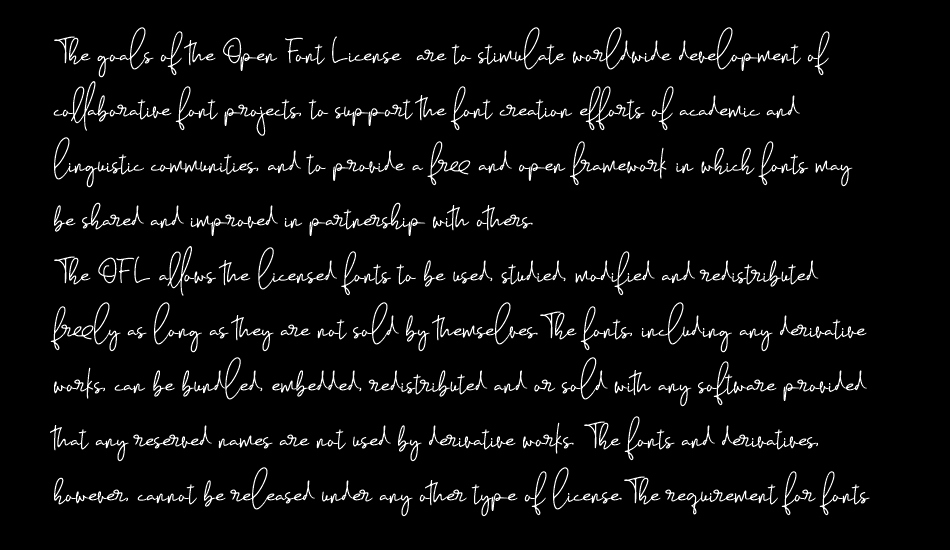 The goals of the Open Font License are to stimulate worldwide development of
collaborative font projects, to support the font creation efforts of academic and
linguistic communities, and to provide a free and open framework in which fonts may
be shared and improved in partnership with others.
The OFL allows the licensed fonts to be used, studied, modified and redistributed
freely as long as they are not sold by themselves. The fonts, including any derivative
works, can be bundled, embedded, redistributed and or sold with any software provided
that any reserved names are not used by derivative works. The fonts and derivatives,
however, cannot be released under any other type of license. The requirement for fonts